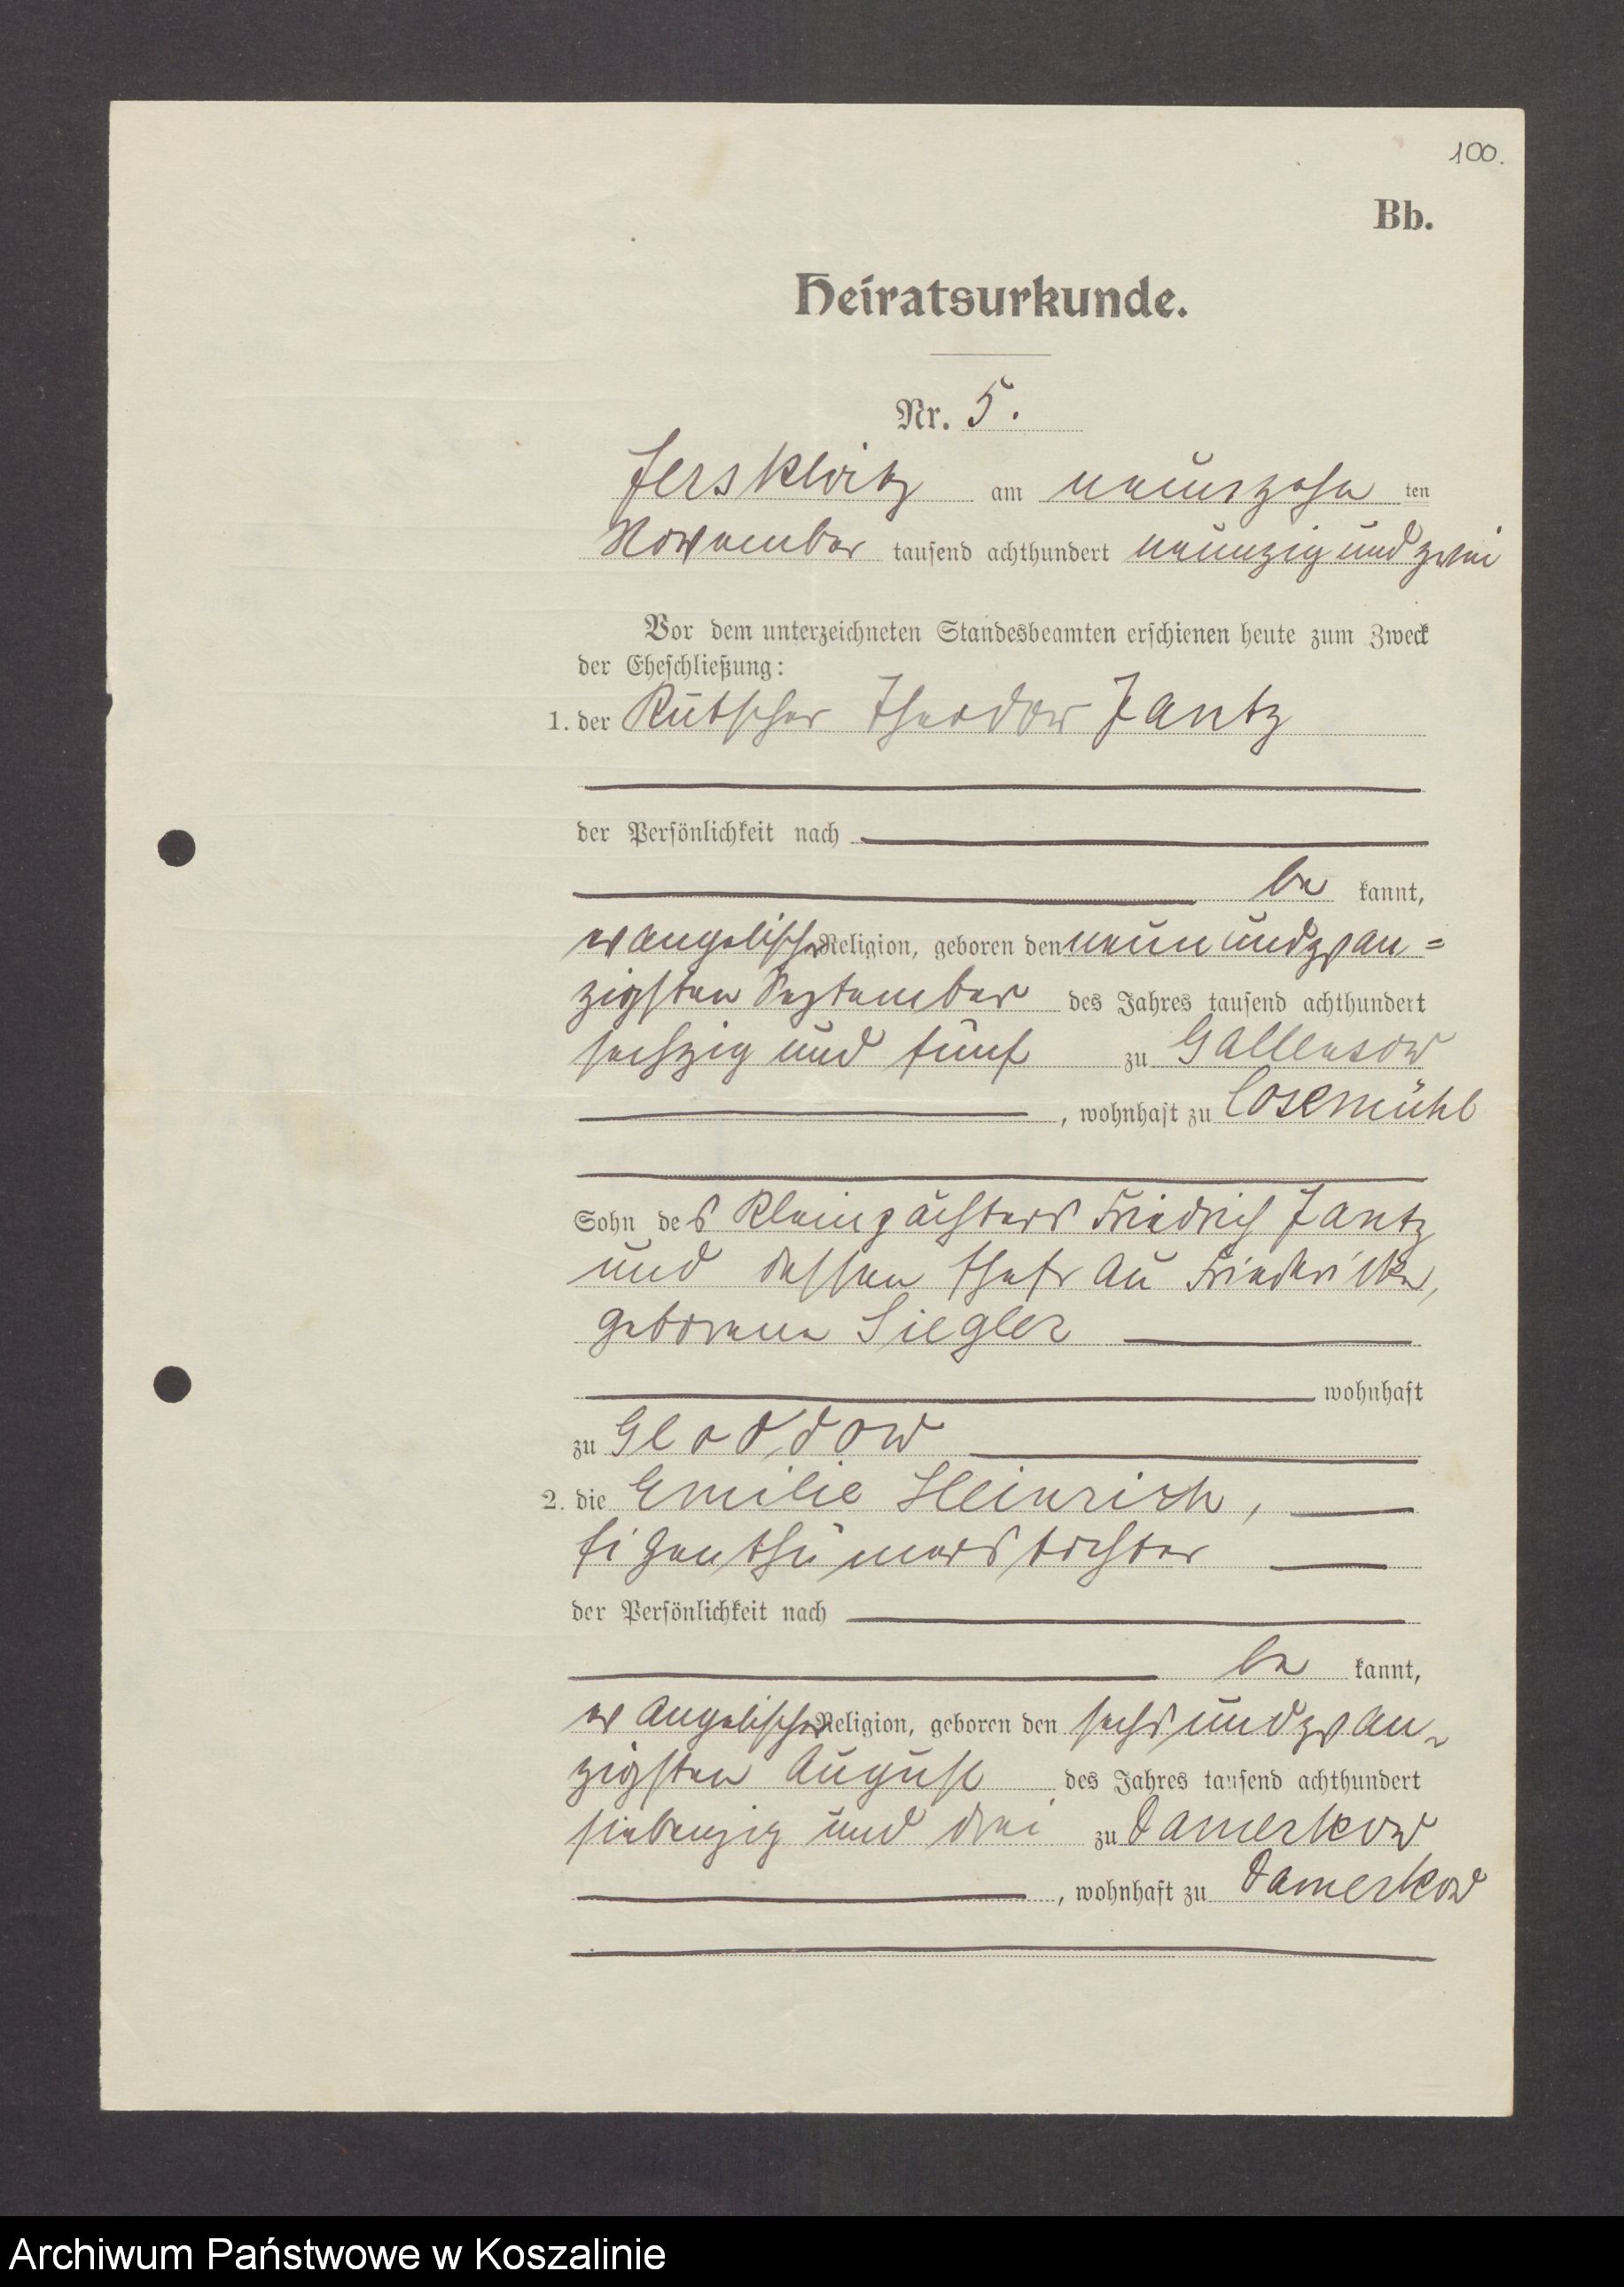 100.
Bb.
Heiratsurkunde.
Nr. 5.
Jerskewitz am neunzehn ten
November tausend achthundert neunzig und zwei
Vor dem unterzeichneten Standesbeamten erschienen heute zum Zweck
der Eheschließung:
1. der Kutscher Theodor Jantz
der Persönlichkeit nach
be kannt,
evangelischer Religion, geboren den neun und zwan=
zigsten September des Jahres tausend achthundert
sechzig und fünf zu Gallensow
, wohnhaft zu Cosemühl
Sohn des Kleinpächters Friedrich Jantz
und dessen Ehefrau Friederike,
geborene Siegler
wohnhaft
zu Gloddow
2. die Emilie Heinrich,
Eigenthümerstochter
der Persönlichkeit nach
be kannt,
evangelischer Religion, geboren den sechs und zwan-
zigsten August des Jahres tausend achthundert
siebenzig und drei zu Damerkow
, wohnhaft zu Damerkow
Archiwum Państwowe w Koszalinie